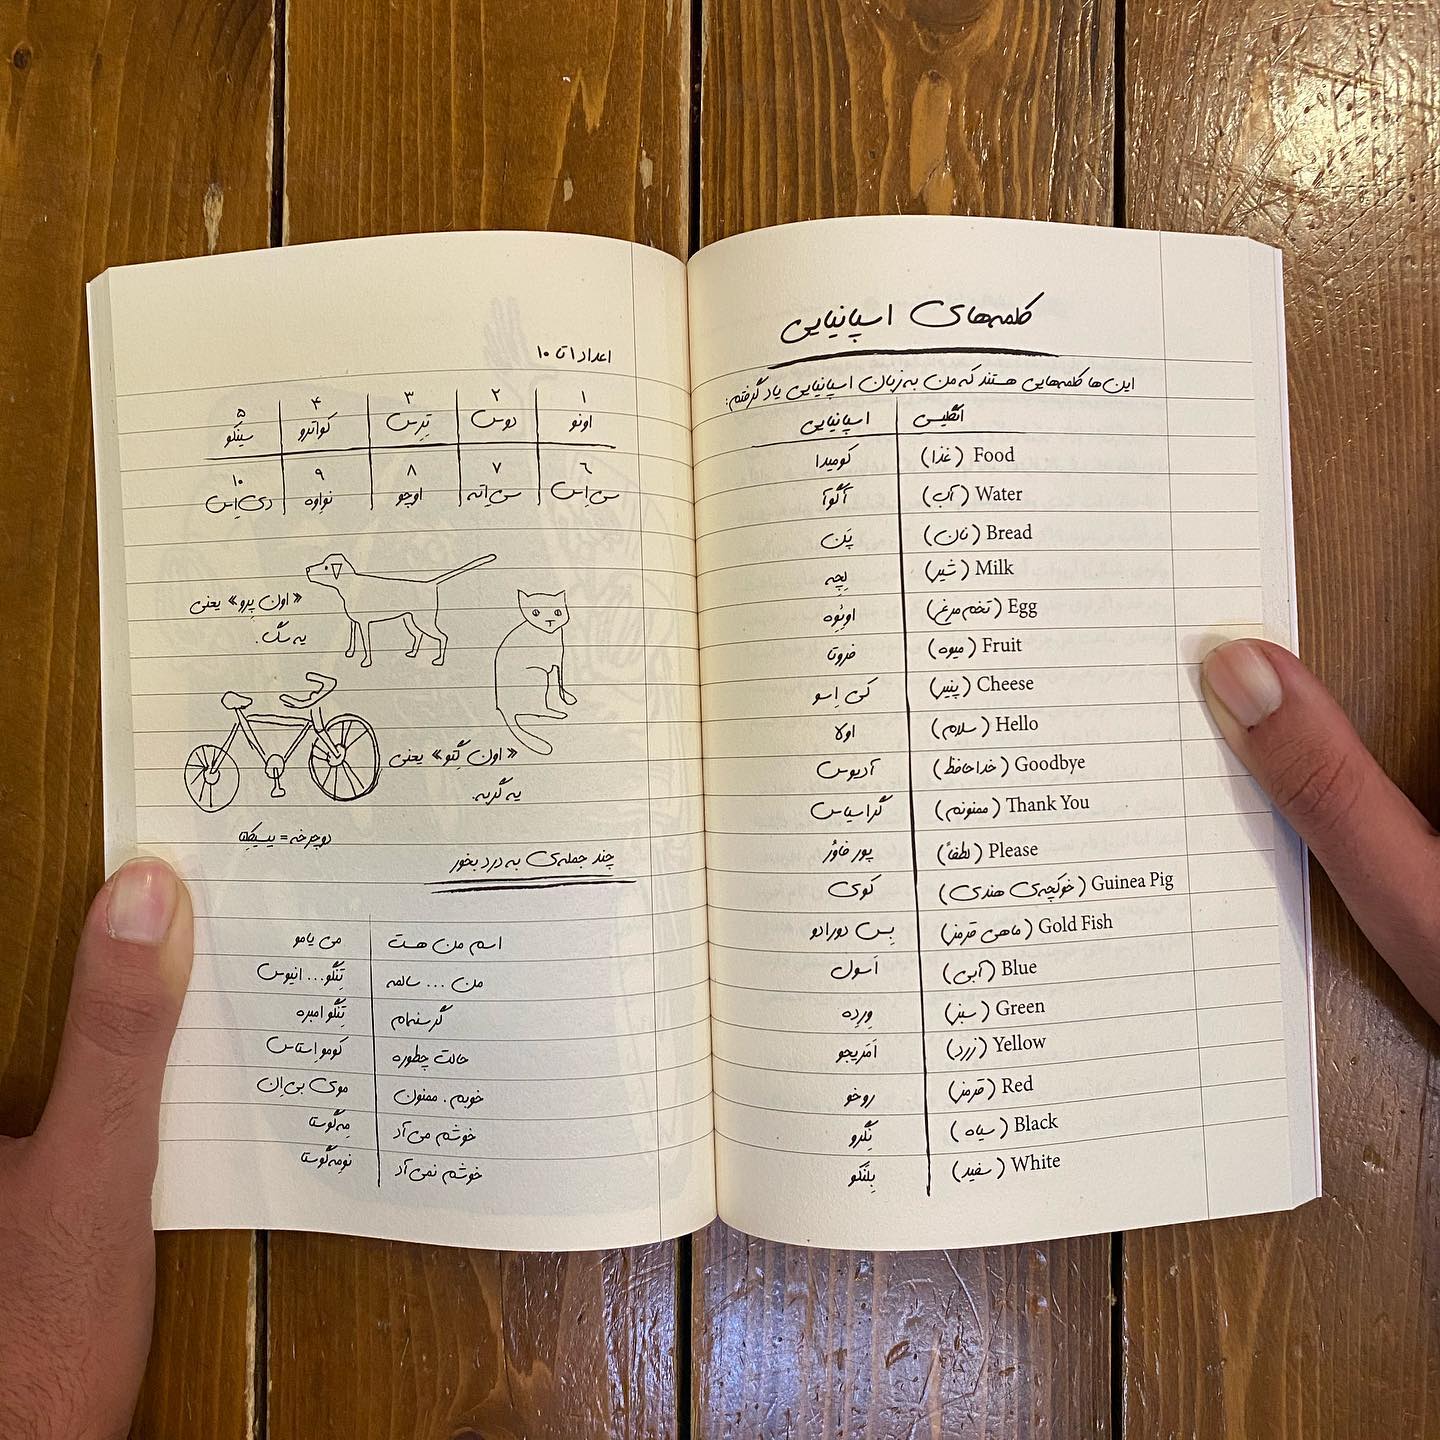 کلمه‌های اسپانیایی
این‌ها کلمه‌هایی هستند که من به زبان اسپانیایی یاد گرفتم:
انگلیسی اسپانیایی
Food (غذا) کومیدا
Water (آب) آگوآ
Bread (نان) پَن
Milk (شیر) لِچِه
Egg (تخم مرغ) اوئِوه
Fruit (میوه) فروتا
Cheese (پنیر) کی اِسو
Hello (سلام) اولا
Goodbye (خداحافظ) آدیوس
Thank You (ممنونم) گراسیاس
Please (لطفاً) پور فاوُر
Guinea Pig (خوکچه‌ی هندی) کوی
Gold Fish (ماهی قرمز) پِس دورادو
Blue (آبی) اَسول
Green (سبز) وِرده
Yellow (زرد) اَمَریجو
Red (قرمز) روخو
Black (سیاه) نِگرو
White (سفید) بِلنکو
اعداد ۱ تا ۱۰
۱ ۲ ۳ ۴ ۵
اونو دوس تِرِس کواترو سینکو
۶ ۷ ۸ ۹ ۱۰
سی‌اِس سی‌اِته اوچو نواوه دی‌اِس
«اون پِرو» یعنی
یه سگ.
«اون گَتو» یعنی
یه گربه.
دوچرخه = بیسیکلتا
چند جمله‌ی به درد بخور
اسم من هست می یامو
من ... سالمه تِنگو... انیوس
گرسنه‌ام تِنگو امبره
حالت چطوره کومو استاس
خوبم. ممنون موی بی‌اِن
خوشم می‌آد مِه گوستا
خوشم نمی‌آد نو مه گوستا